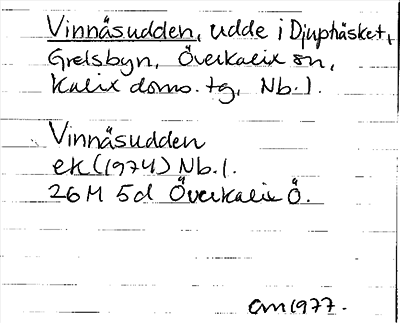 Vinnäsudden, udde i Djuphäsket,
Grelsbyn, Överkalix sn,
Kalix doms. tg, Nb. l.
Vinnäsudden
ek (1974) Nb. l.
26 M 5d Överkalix Ö.
am 1977.